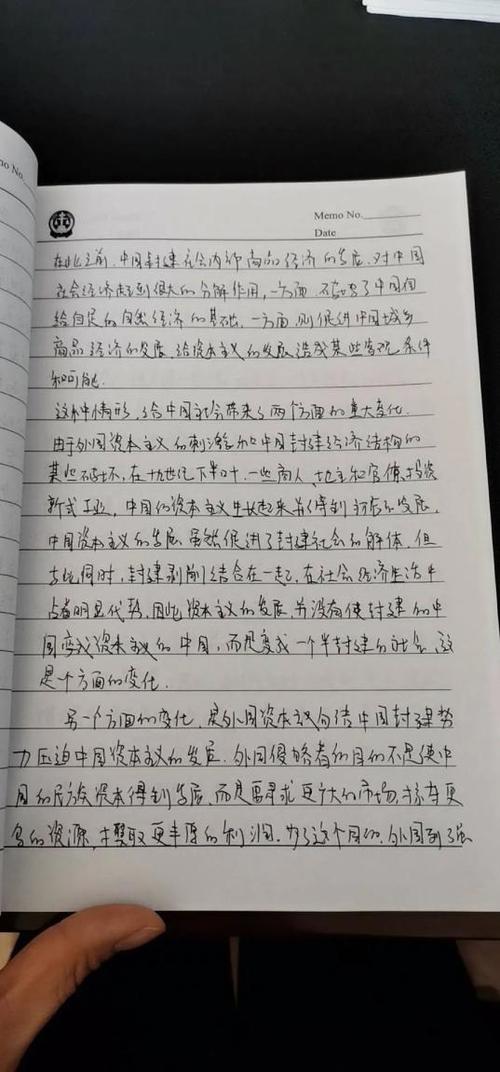 Memo No.
Date
在此之前,中国封建社会内部商品经济的发展,对中国
社会经济起到很大的分解作用,一方面 破坏了中国自
给自足的自然经济的基础,一方面,则促进中国城乡
商品经济的发展,给资本主义的发展造成某些客观条件
和可能.
这种情形,给中国社会带来了两个方面的重大变化.
由于外国资本主义的刺激和中国封建经济结构的
某些破坏,在十九世纪下半叶,一些商人、地主和官僚投资
新式工业,中国的资本主义生长起来并得到初步的发展,
中国资本主义的发展虽然促进了封建社会的解体,但
与此同时,封建剥削结合在一起,在社会经济生活中
占着明显优势,因此资本主义的发展,并没有使封建的中
国变成资本主义的中国,而是变成一个半封建的社会,这
是一个方面的变化.
另一个方面的变化,是外国资本主义勾结中国封建势
力压迫中国资本主义的发展.外国侵略者的目的不是使中
国的民族资本得到发展,而是要寻求更大的市场,掠夺更
多的资源,攫取更丰厚的利润.为了这个目的,外国列强